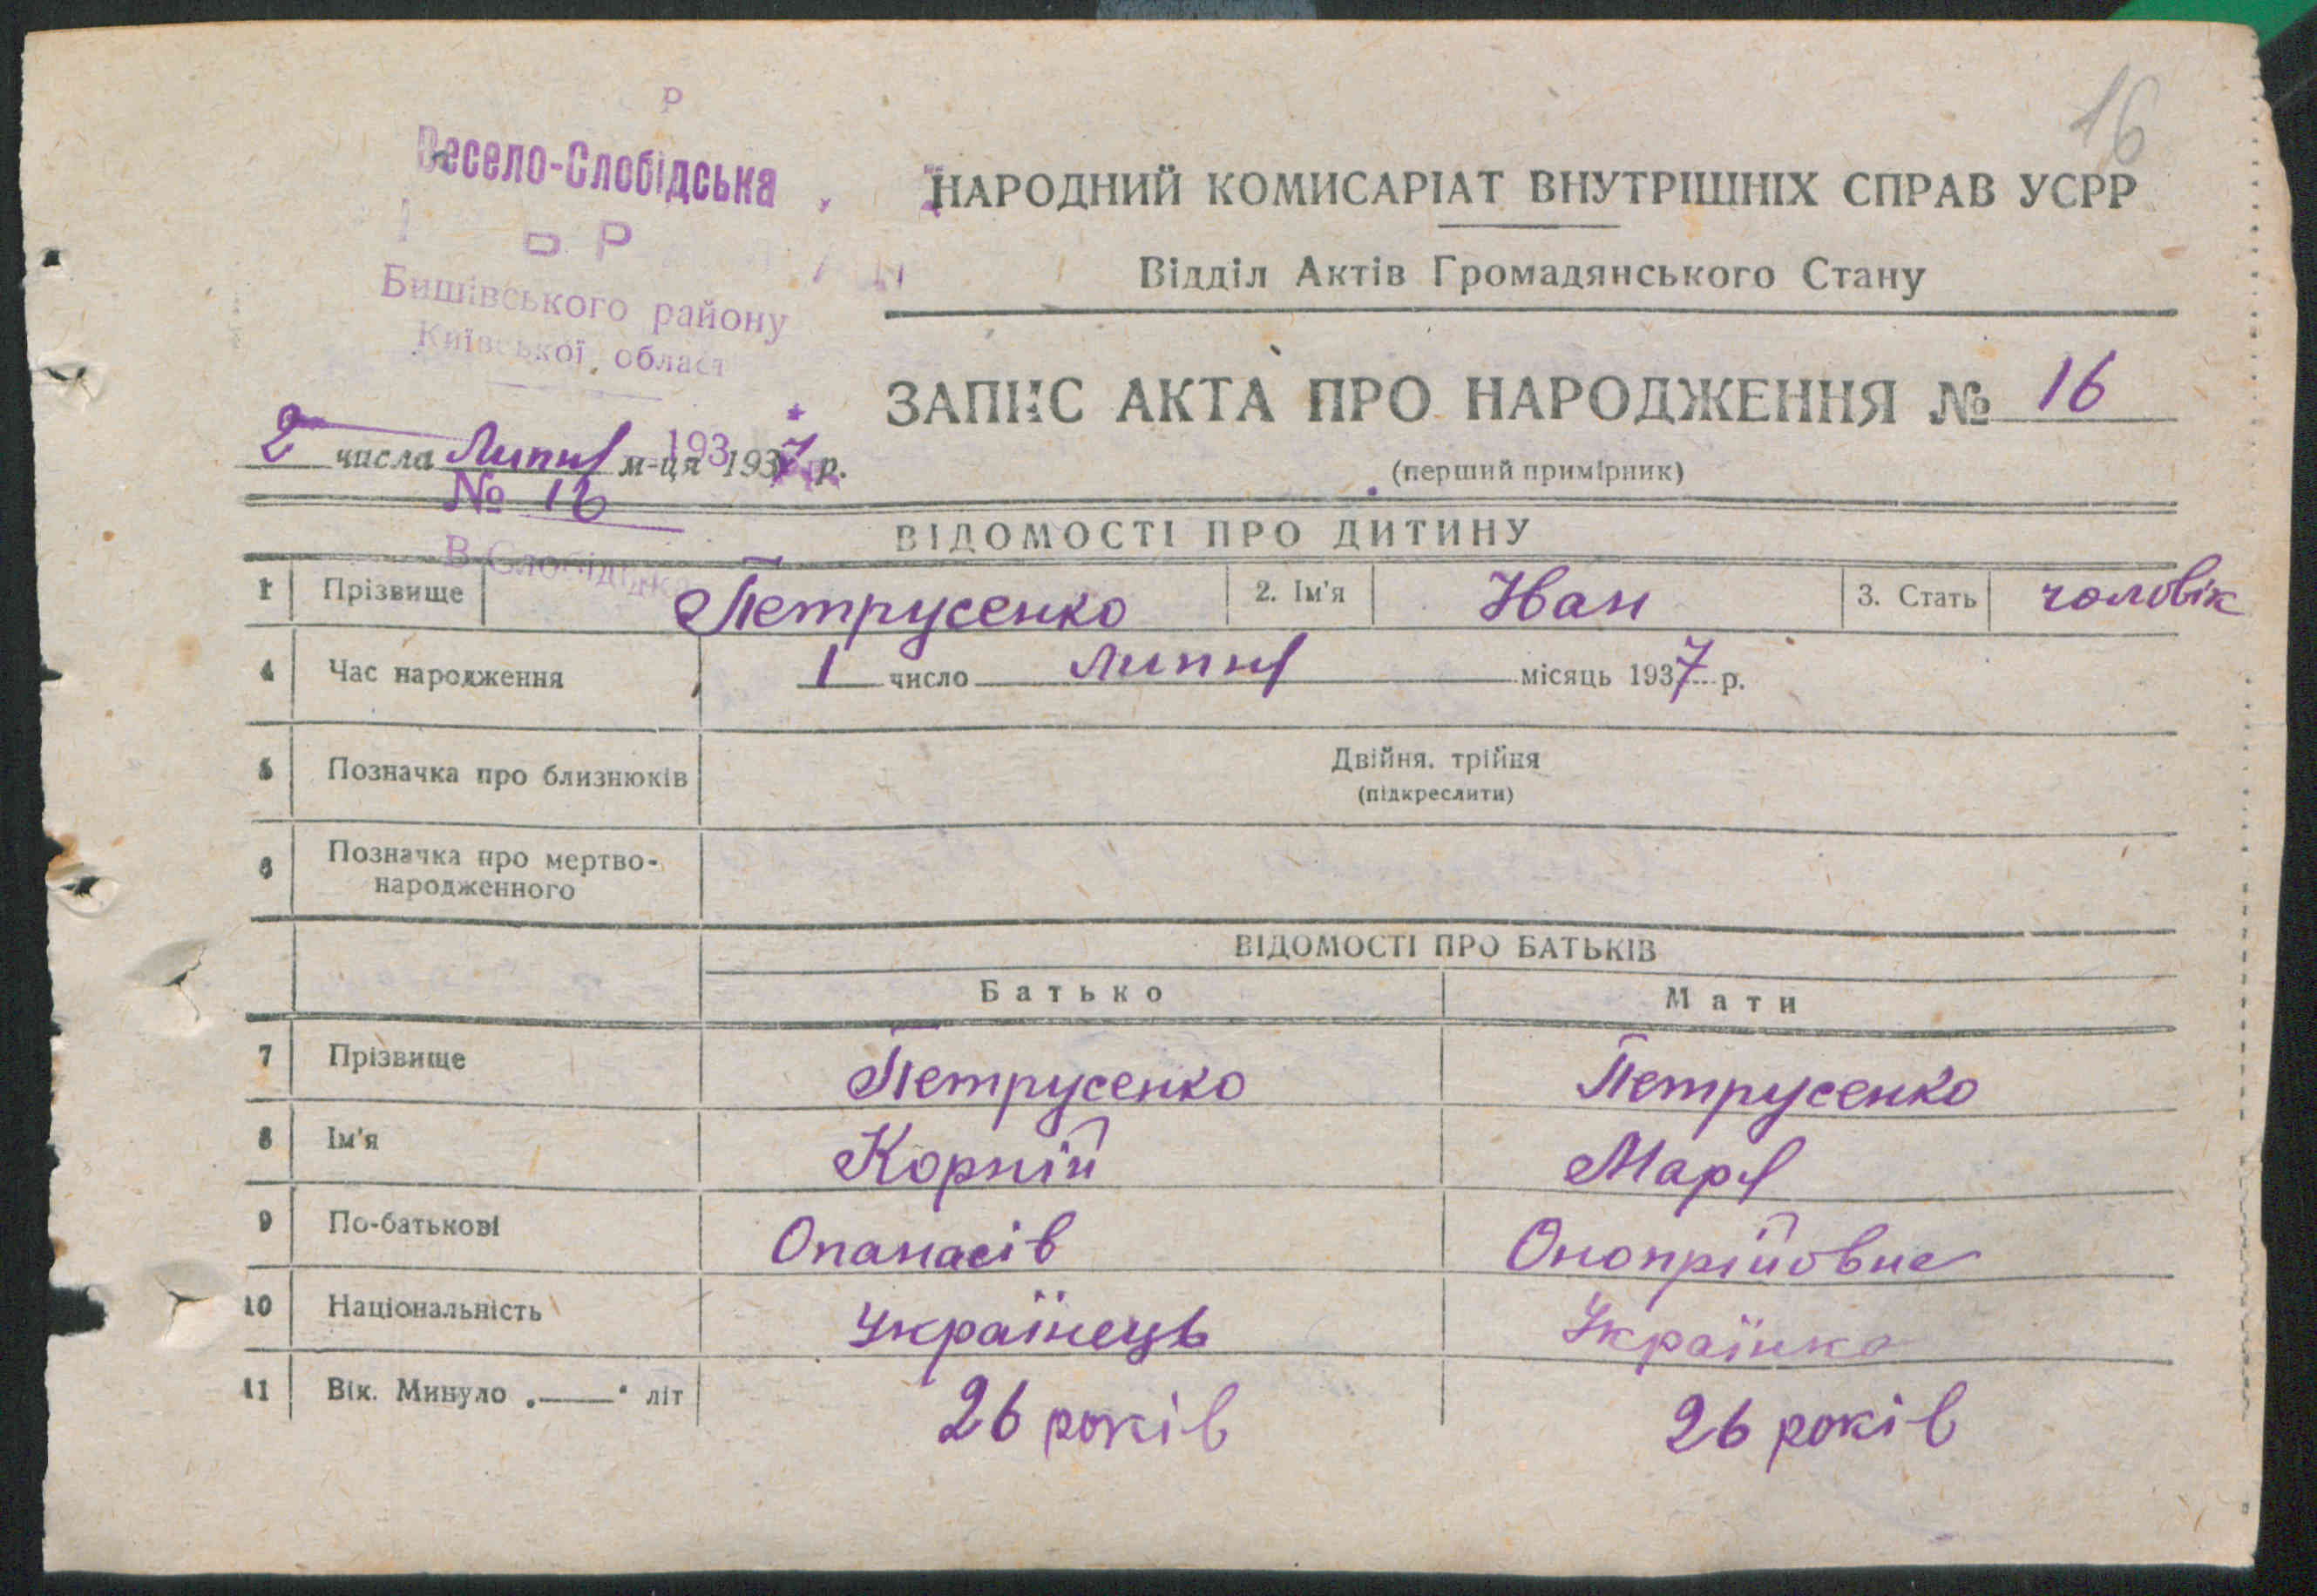 16
Весело-Слобідська
Р
Бишівського району
Київської област
НАРОДНИЙ КОМИСАРІАТ ВНУТРІШНІХ СПРАВ УСРР
Відділ Актів Громадянського Стану
ЗАПИС АКТА ПРО НАРОДЖЕННЯ № 16
(перший примірник)
2 числа Липня м-ця 193 1937 р.
№ 16
В-Слобідська
ВІДОМОСТІ ПРО ДИТИНУ
1 Прізвище Петрусенко 2. Ім'я Іван 3. Стать чоловік
4 Час народження 1 число Липня місяць 1937 р.
5 Позначка про близнюків Двійня, трійня
(підкреслити)
6 Позначка про мертво-
народженного
ВІДОМОСТІ ПРО БАТЬКІВ
Батько Мати
7 Прізвище Петрусенко Петрусенко
8 Ім'я Корній Маря
9 По-батькові Опанасів Оноприйовна
10 Національність Українець Українка
11 Вік. Минуло „—" літ 26 років 26 років